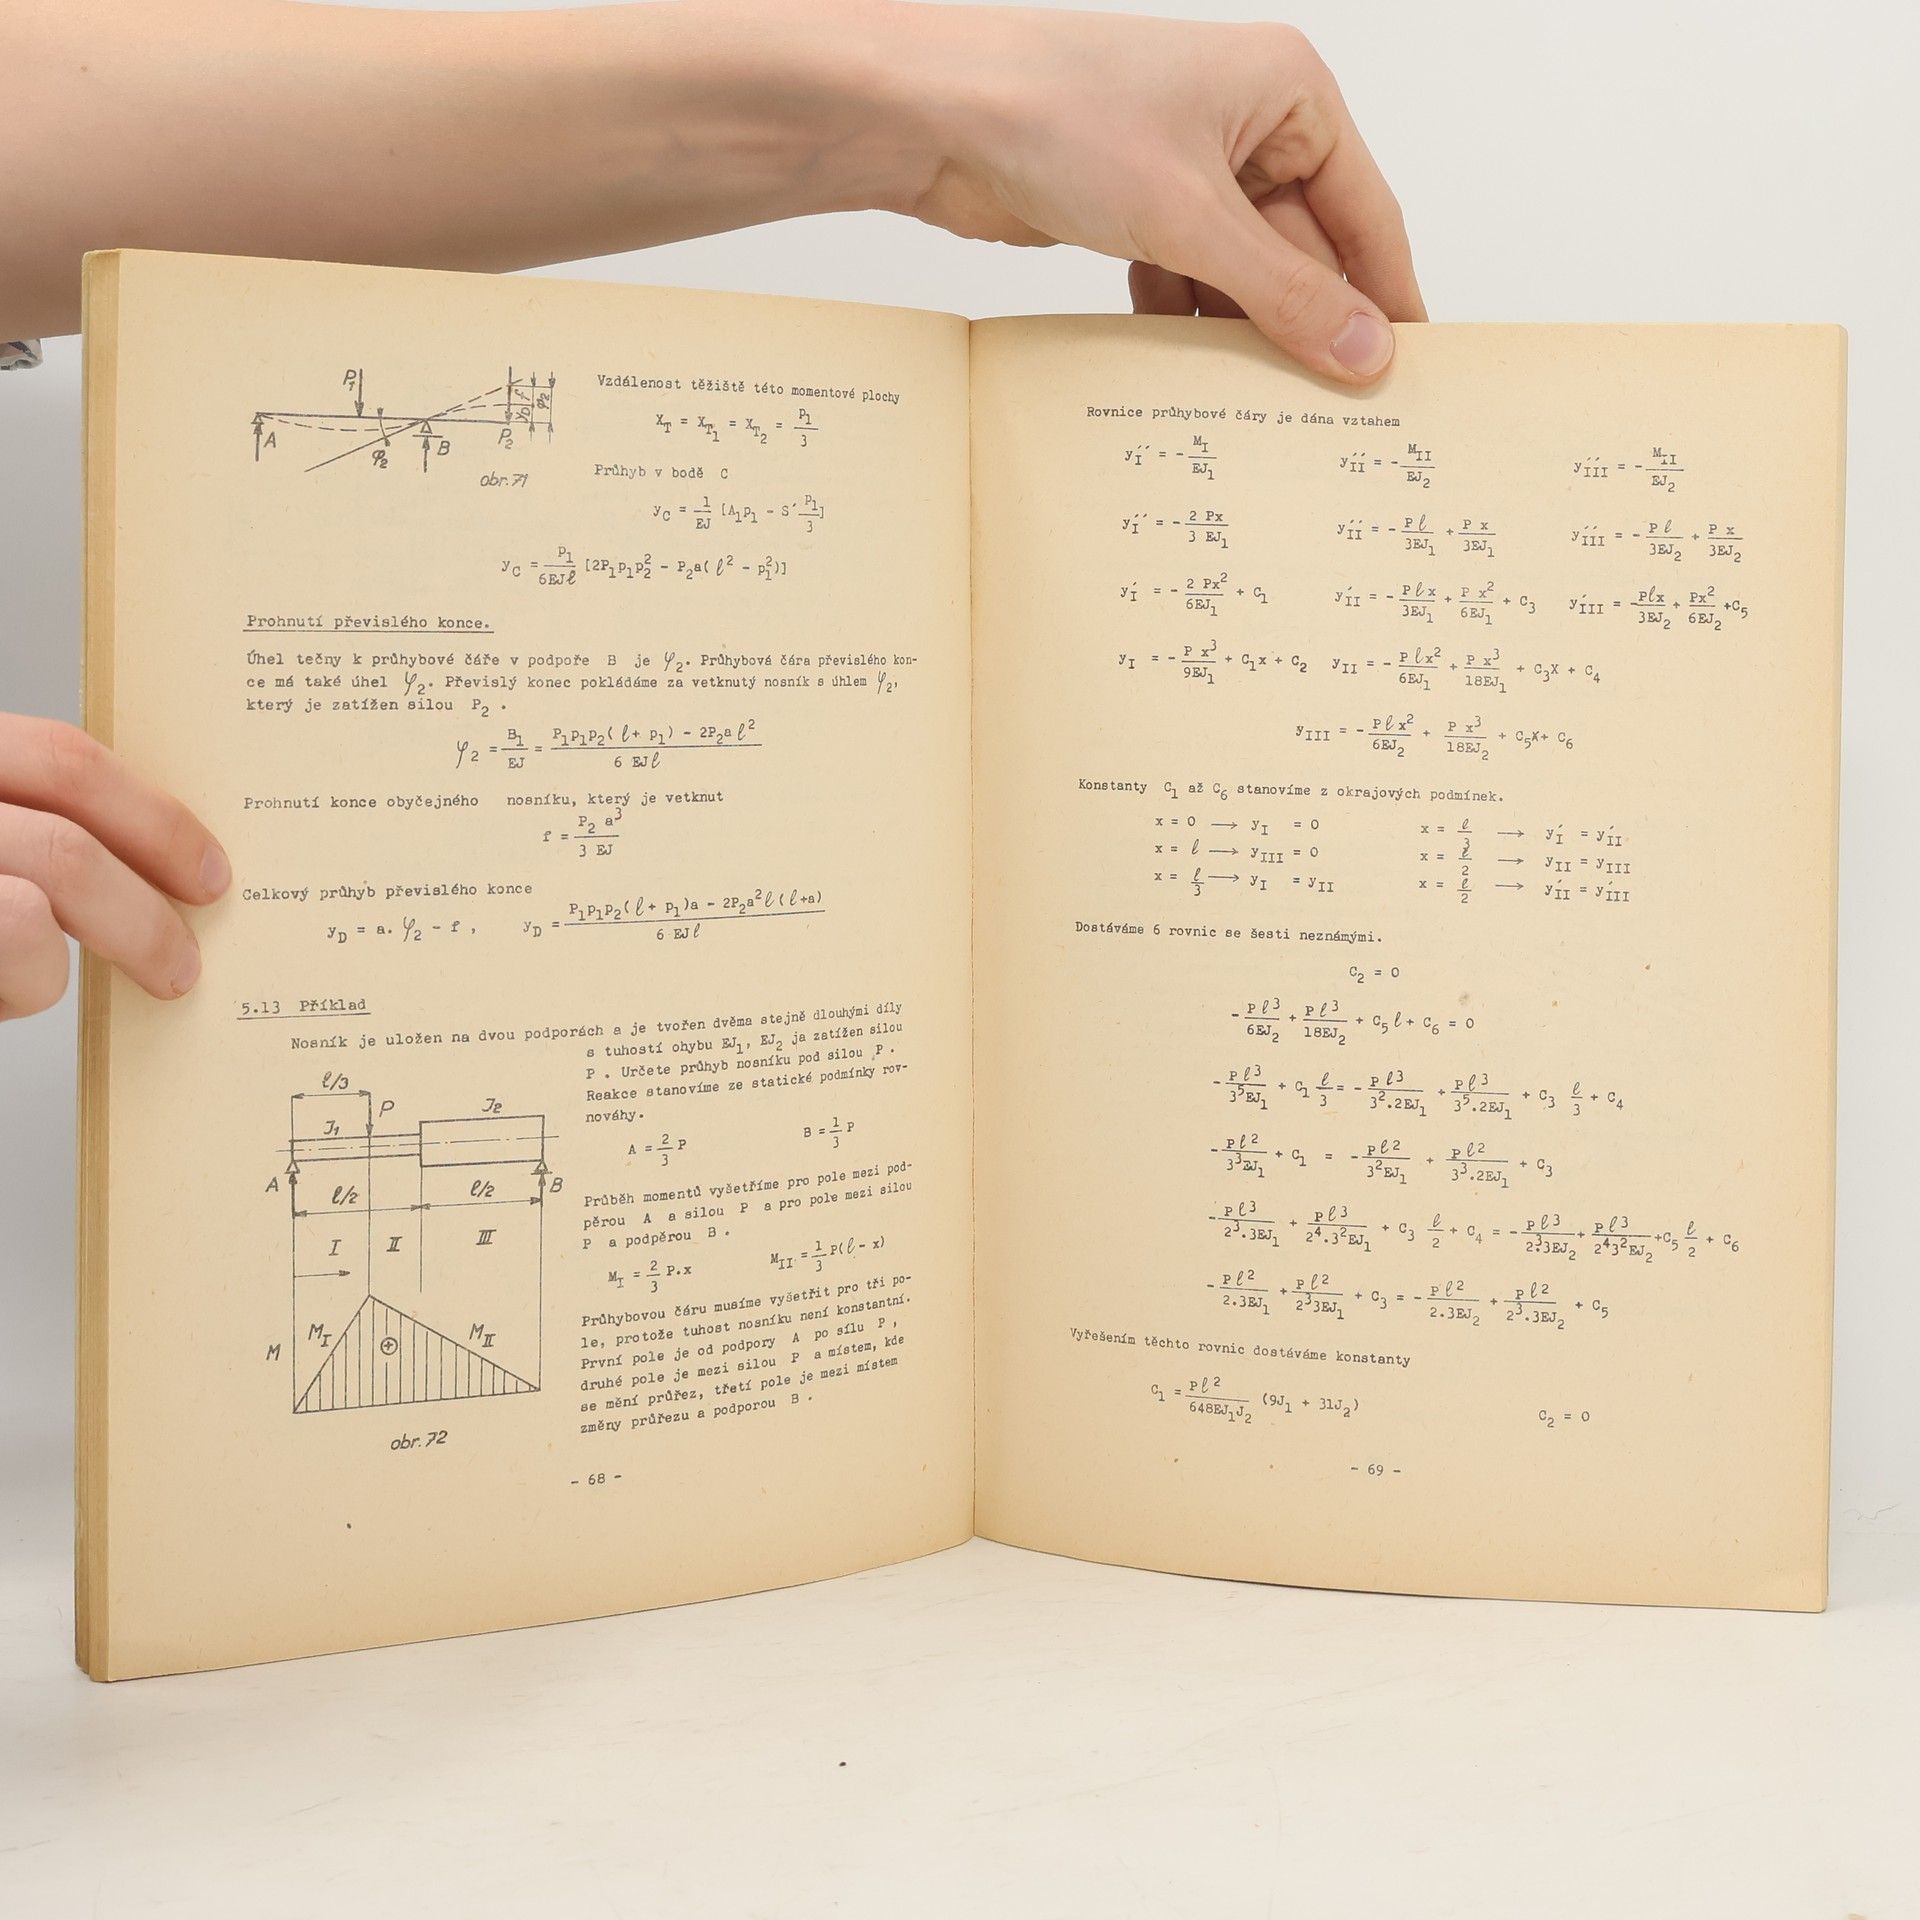 P₁
A
φ₂
B
P₂
y_D f
φ₂
obr. 71
Vzdálenost těžiště této momentové plochy
X_T = X_T₁ = X_T₂ = p₁/3
Průhyb v bodě C
y_C = 1/EJ [A₁p₁ - S´ p₁/3]
y_C = p₁/6EJℓ [2P₁p₁p₂² - P₂a(ℓ² - p₁²)]
Prohnutí převislého konce.
Úhel tečny k průhybové čáře v podpoře B je φ₂. Průhybová čára převislého kon-
ce má také úhel φ₂. Převislý konec pokládáme za vetknutý nosník s úhlem φ₂,
který je zatížen silou P₂ .
φ₂ = B₁/EJ = (P₁p₁p₂(ℓ+ p₁) - 2P₂aℓ²)/6 EJℓ
Prohnutí konce obyčejného nosníku, který je vetknut
f = P₂ a³/3 EJ
Celkový průhyb převislého konce
y_D = a. φ₂ - f , y_D = (P₁p₁p₂(ℓ+ p₁)a - 2P₂a²ℓ(ℓ+a))/6 EJℓ
5.13 Příklad
Nosník je uložen na dvou podporách a je tvořen dvěma stejně dlouhými díly
s tuhostí ohybu EJ₁, EJ₂ ja zatížen silou
P . Určete průhyb nosníku pod silou P .
Reakce stanovíme ze statické podmínky rov-
nováhy.
A = 2/3 P B = 1/3 P
Průběh momentů vyšetříme pro pole mezi pod-
pěrou A a silou P a pro pole mezi silou
P a podpěrou B .
M_I = 2/3 P.x M_II = 1/3 P(ℓ - x)
Průhybovou čáru musíme vyšetřit pro tři po-
le, protože tuhost nosníku není konstantní.
První pole je od podpory A po sílu P ,
druhé pole je mezi silou P a místem, kde
se mění průřez, třetí pole je mezi místem
změny průřezu a podporou B .
ℓ/3
P
J₂
J₁
A
ℓ/2
ℓ/2
B
I
II
III
M
M_I
M_II
obr. 72
- 68 -
Rovnice průhybové čáry je dána vztahem
y_I´´ = - M_I/EJ₁ y_II´´ = - M_II/EJ₂ y_III´´ = - M_II/EJ₂
y_I´´ = - 2 Px/3 EJ₁ y_II´´ = - Pℓ/3EJ₁ + P x/3EJ₁ y_III´´ = - Pℓ/3EJ₂ + P x/3EJ₂
y_I´ = - 2 Px²/6EJ₁ + C₁ y_II´ = - Pℓx/3EJ₁ + P x²/6EJ₁ + C₃ y_III´ = - Pℓx/3EJ₂ + Px²/6EJ₂ +C₅
y_I = - P x³/9EJ₁ + C₁x + C₂ y_II = - Pℓx²/6EJ₁ + P x³/18EJ₁ + C₃x + C₄
y_III = - Pℓx²/6EJ₂ + P x³/18EJ₂ + C₅x+ C₆
Konstanty C₁ až C₆ stanovíme z okrajových podmínek.
x = 0 → y_I = 0 x = ℓ/3 → y_I´ = y_II´
x = ℓ → y_III = 0 x = ℓ/2 → y_II = y_III
x = ℓ/3 → y_I = y_II x = ℓ/2 → y_II´ = y_III´
Dostáváme 6 rovnic se šesti neznámými.
C₂ = 0
- Pℓ³/6EJ₂ + Pℓ³/18EJ₂ + C₅ℓ+ C₆ = 0
- Pℓ³/3⁵EJ₁ + C₁ ℓ/3 = - Pℓ³/3².2EJ₁ + Pℓ³/3⁵.2EJ₁ + C₃ ℓ/3 + C₄
- Pℓ²/3³EJ₁ + C₁ = - Pℓ²/3²EJ₁ + Pℓ²/3³.2EJ₁ + C₃
- Pℓ³/2³.3EJ₁ + Pℓ³/2⁴.3²EJ₁ + C₃ ℓ/2 + C₄ = - Pℓ³/2³.3EJ₂ + Pℓ³/2⁴3²EJ₂ +C₅ ℓ/2 + C₆
- Pℓ²/2.3EJ₁ + Pℓ²/2³3EJ₁ + C₃ = - Pℓ²/2.3EJ₂ + Pℓ²/2³.3EJ₂ + C₅
Vyřešením těchto rovnic dostáváme konstanty
C₁ = Pℓ²/648EJ₁J₂ (9J₁ + 31J₂) C₂ = 0
- 69 -